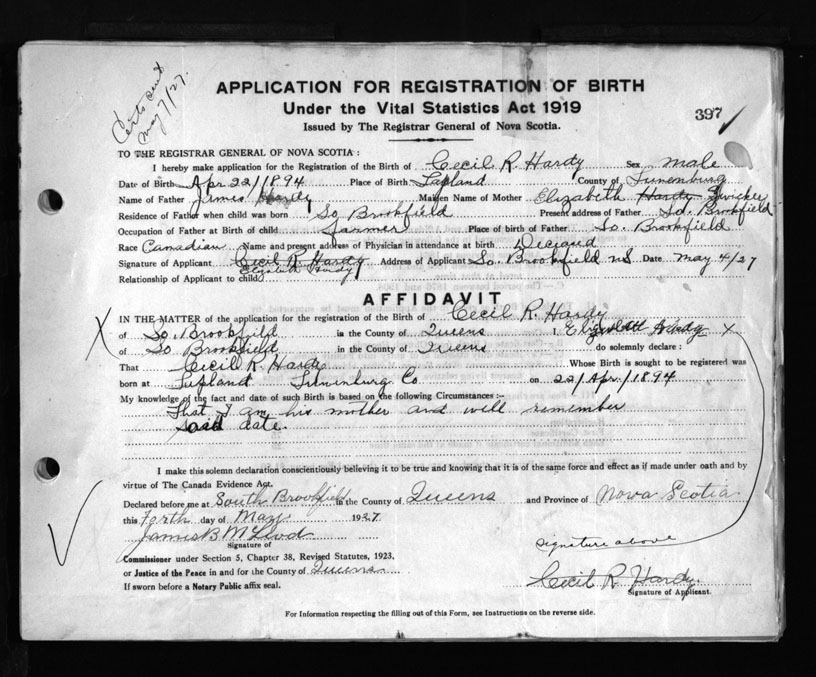 Certs sent
May 7/27.
APPLICATION FOR REGISTRATION OF BIRTH
Under the Vital Statistics Act 1919
397
Issued by The Registrar General of Nova Scotia.
TO THE REGISTRAR GENERAL OF NOVA SCOTIA:
I hereby make application for the Registration of the Birth of Cecil R. Hardy Sex male
Date of Birth Apr 22/1894 Place of Birth Lapland County of Lunenburg
Name of Father James Hardy Maiden Name of Mother Elizabeth Hardy Zwicker
Residence of Father when child was born So Brookfield Present address of Father So. Brookfield
Occupation of Father at Birth of child Farmer Place of birth of Father So. Brookfield
Race Canadian Name and present address of Physician in attendance at birth
Signature of Applicant Cecil R. Hardy Address of Applicant So. Brookfield NS Date May 4/27
Elizabeth Hardy
Relationship of Applicant to child
AFFIDAVIT
IN THE MATTER of the application for the registration of Birth of Cecil R. Hardy
X of So. Brookfield in the County of Queens I, Elizabeth Hardy X
of So Brookfield in the County of Queens do solemnly declare:
That Cecil R. Hardy Whose Birth is sought to be registered was
born at Lapland Lunenburg Co on 22/Apr/1894
My knowledge of the fact and date of such Birth is based on the following Circumstances:-
That I am his mother and well remember
said date.
I make this solemn declaration conscientiously believing it to be true and knowing that it is of the same force and effect as if made under oath and by
virtue of The Canada Evidence Act.
Declared before me at South Brookfield in the County of Queens and Province of Nova Scotia
this Forth day of May 1927
James B McLeod
signature above
Signature of
Commissioner under Section 5, Chapter 38, Revised Statutes, 1923,
or Justice of the Peace in and for the County of Queens
Cecil R. Hardy.
If sworn before a Notary Public affix seal.
Signature of Applicant.
For Information respecting the filling out of this Form, see Instructions on the reverse side.